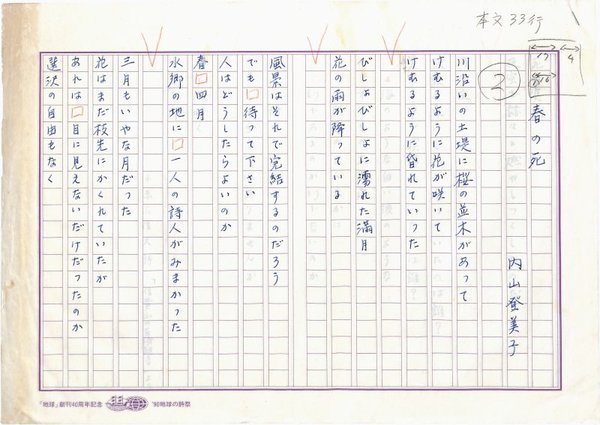 本文33行
2
春の死
内山登美子
川沿いの土堤に桜の並木があって
けむるように花が咲いて
けむるように昏れていった
びしょびしょに濡れた満月
花の雨が降っている
風景はそれで完結するのだろう
でも 待って下さい
人はどうしたらよいのか
春 四月
水郷の地に 一人の詩人がみまかった
三月もいやな月だった
花はまだ枝先にかくれていたが
あれは 目に見えないだけだったのか
選択の自由もなく
「地球」創刊40周年記念 '90地球の詩祭